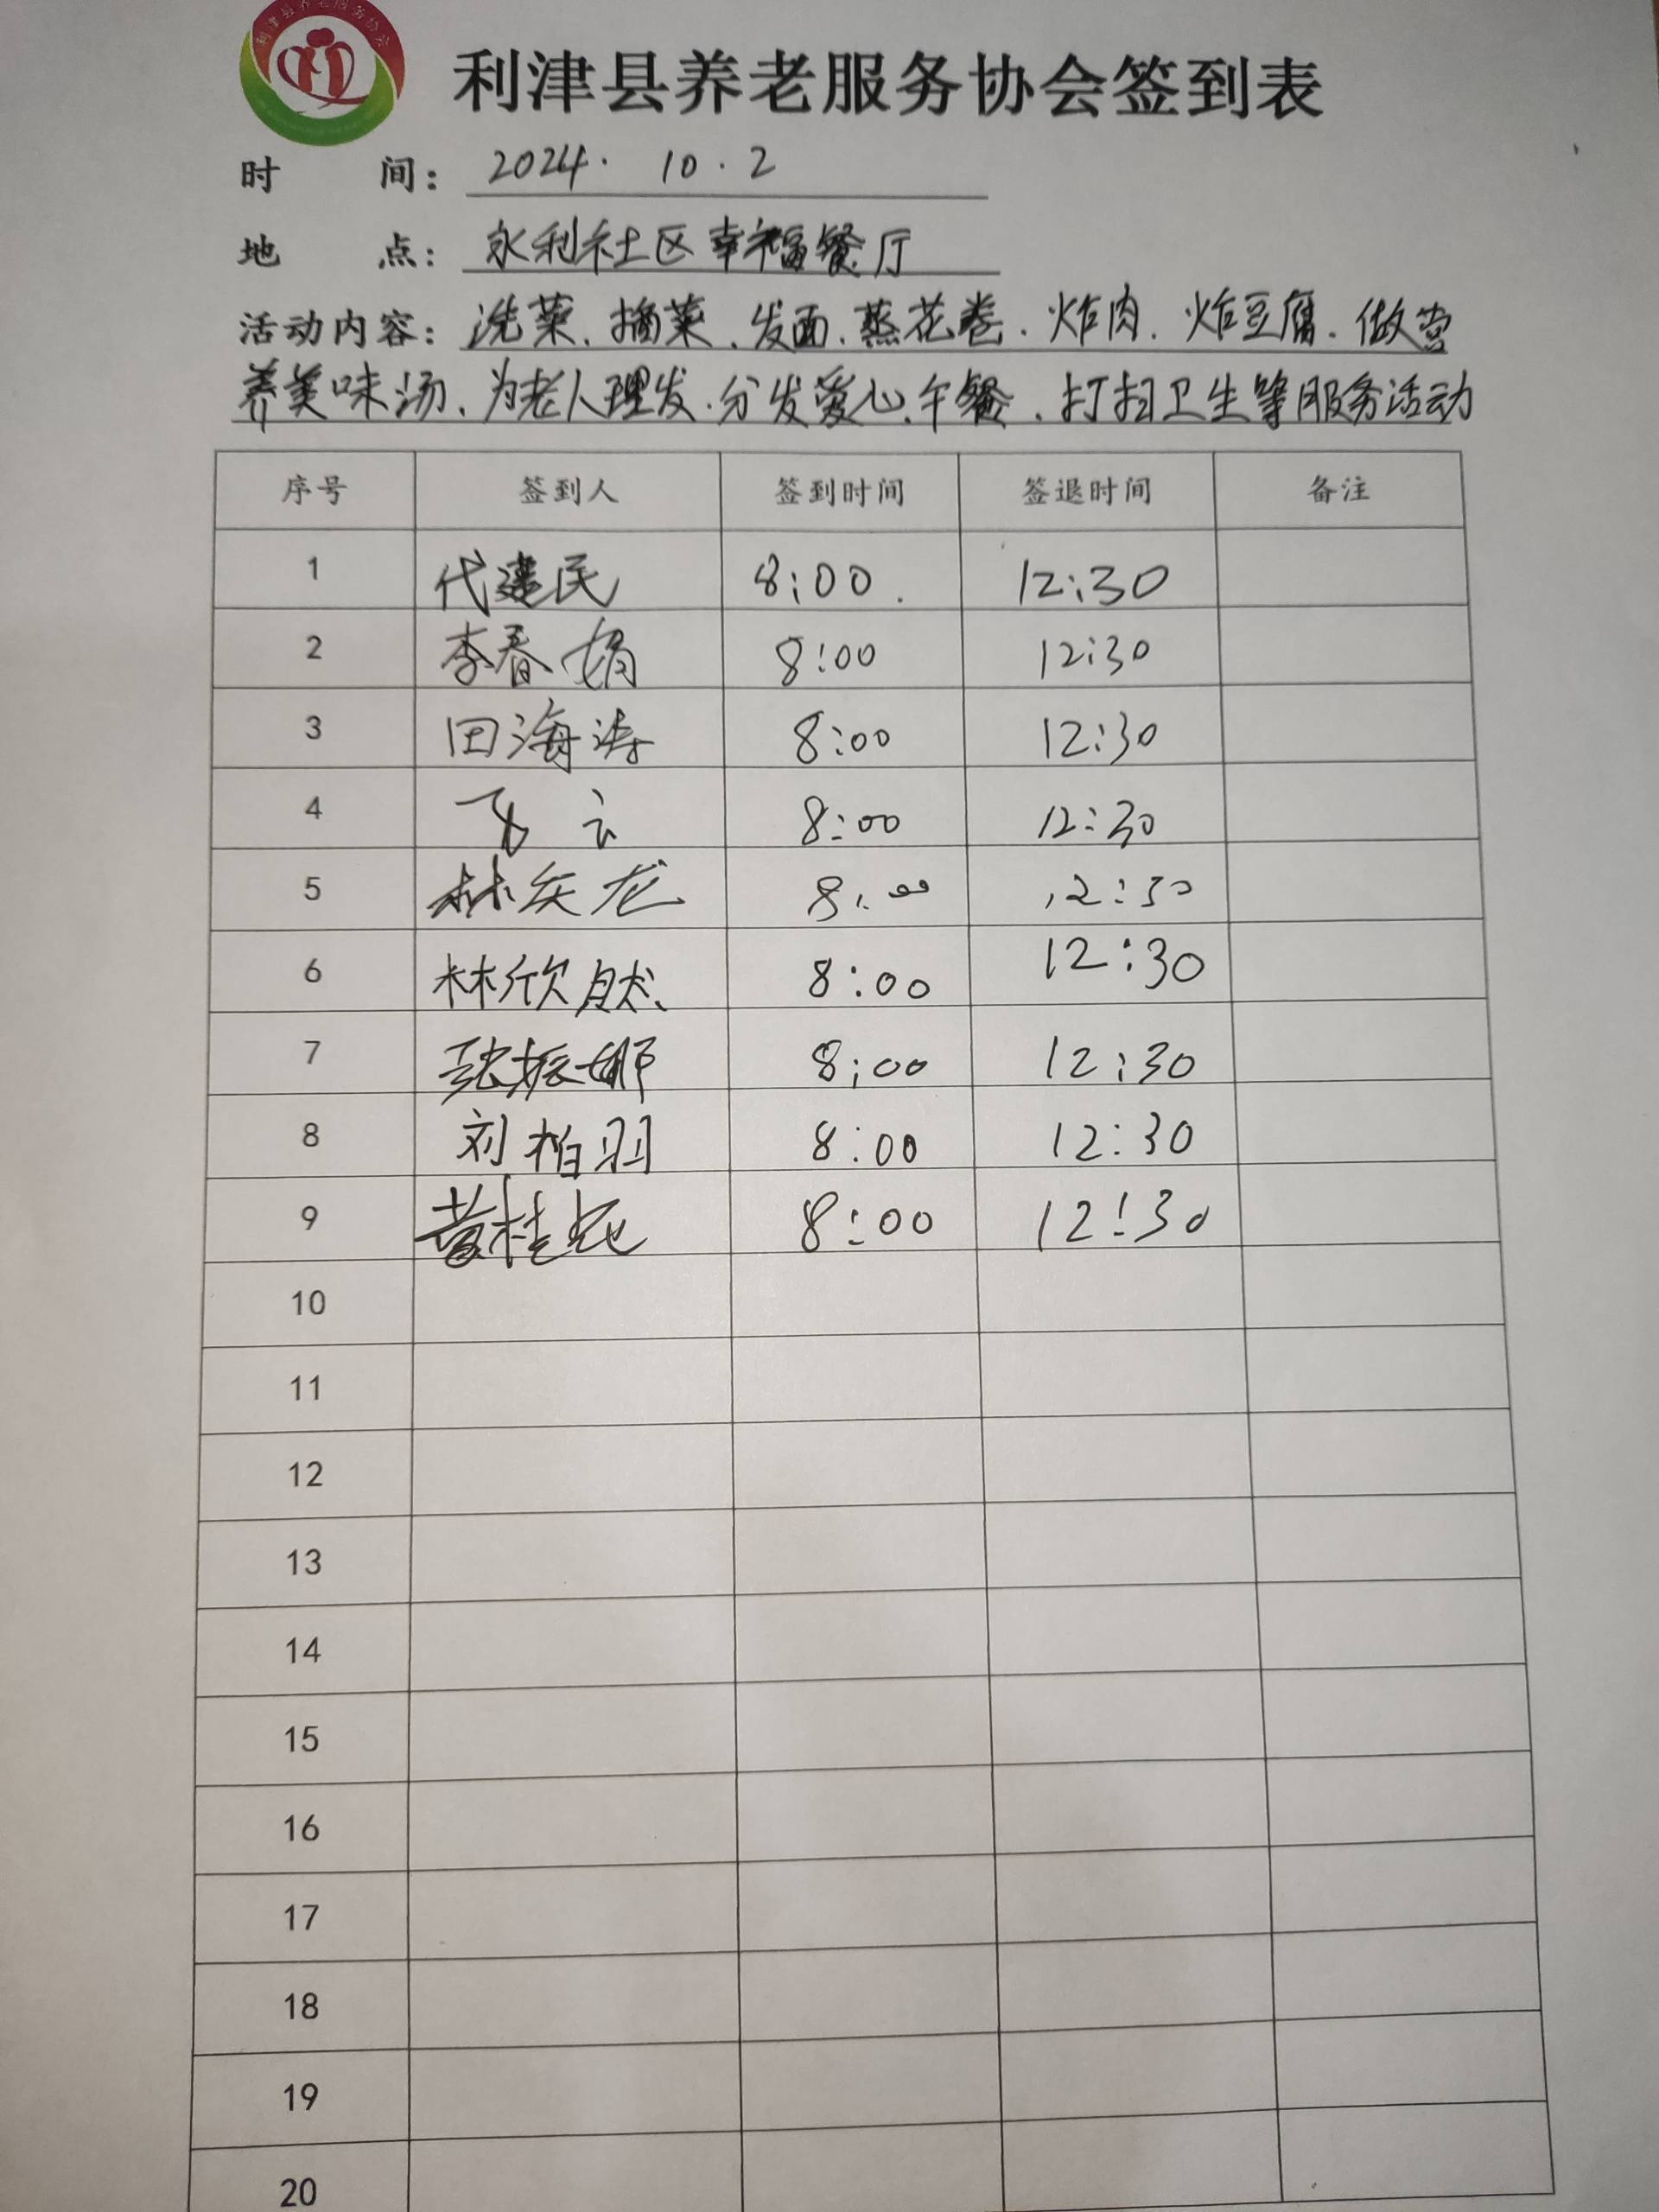 利津县养老服务协会
利津县养老服务协会签到表
时 间: 2024. 10.2
地 点: 永利社区幸福餐厅
活动内容: 洗菜、摘菜、发面、蒸花卷、炸肉、炸豆腐、做营
养美味汤、为老人理发、分发爱心午餐、打扫卫生等服务活动
序号 签到人 签到时间 签退时间 备注
1 代建民 8:00. 12:30
2 李春娟 8:00 12:30
3 田海涛 8:00 12:30
4 飞云 8:00 12:30
5 林庆龙 8:00 12:30
6 林欣然 8:00 12:30
7 张振娜 8:00 12:30
8 刘柏羽 8:00 12:30
9 黄桂 8:00 12:30
10
11
12
13
14
15
16
17
18
19
20